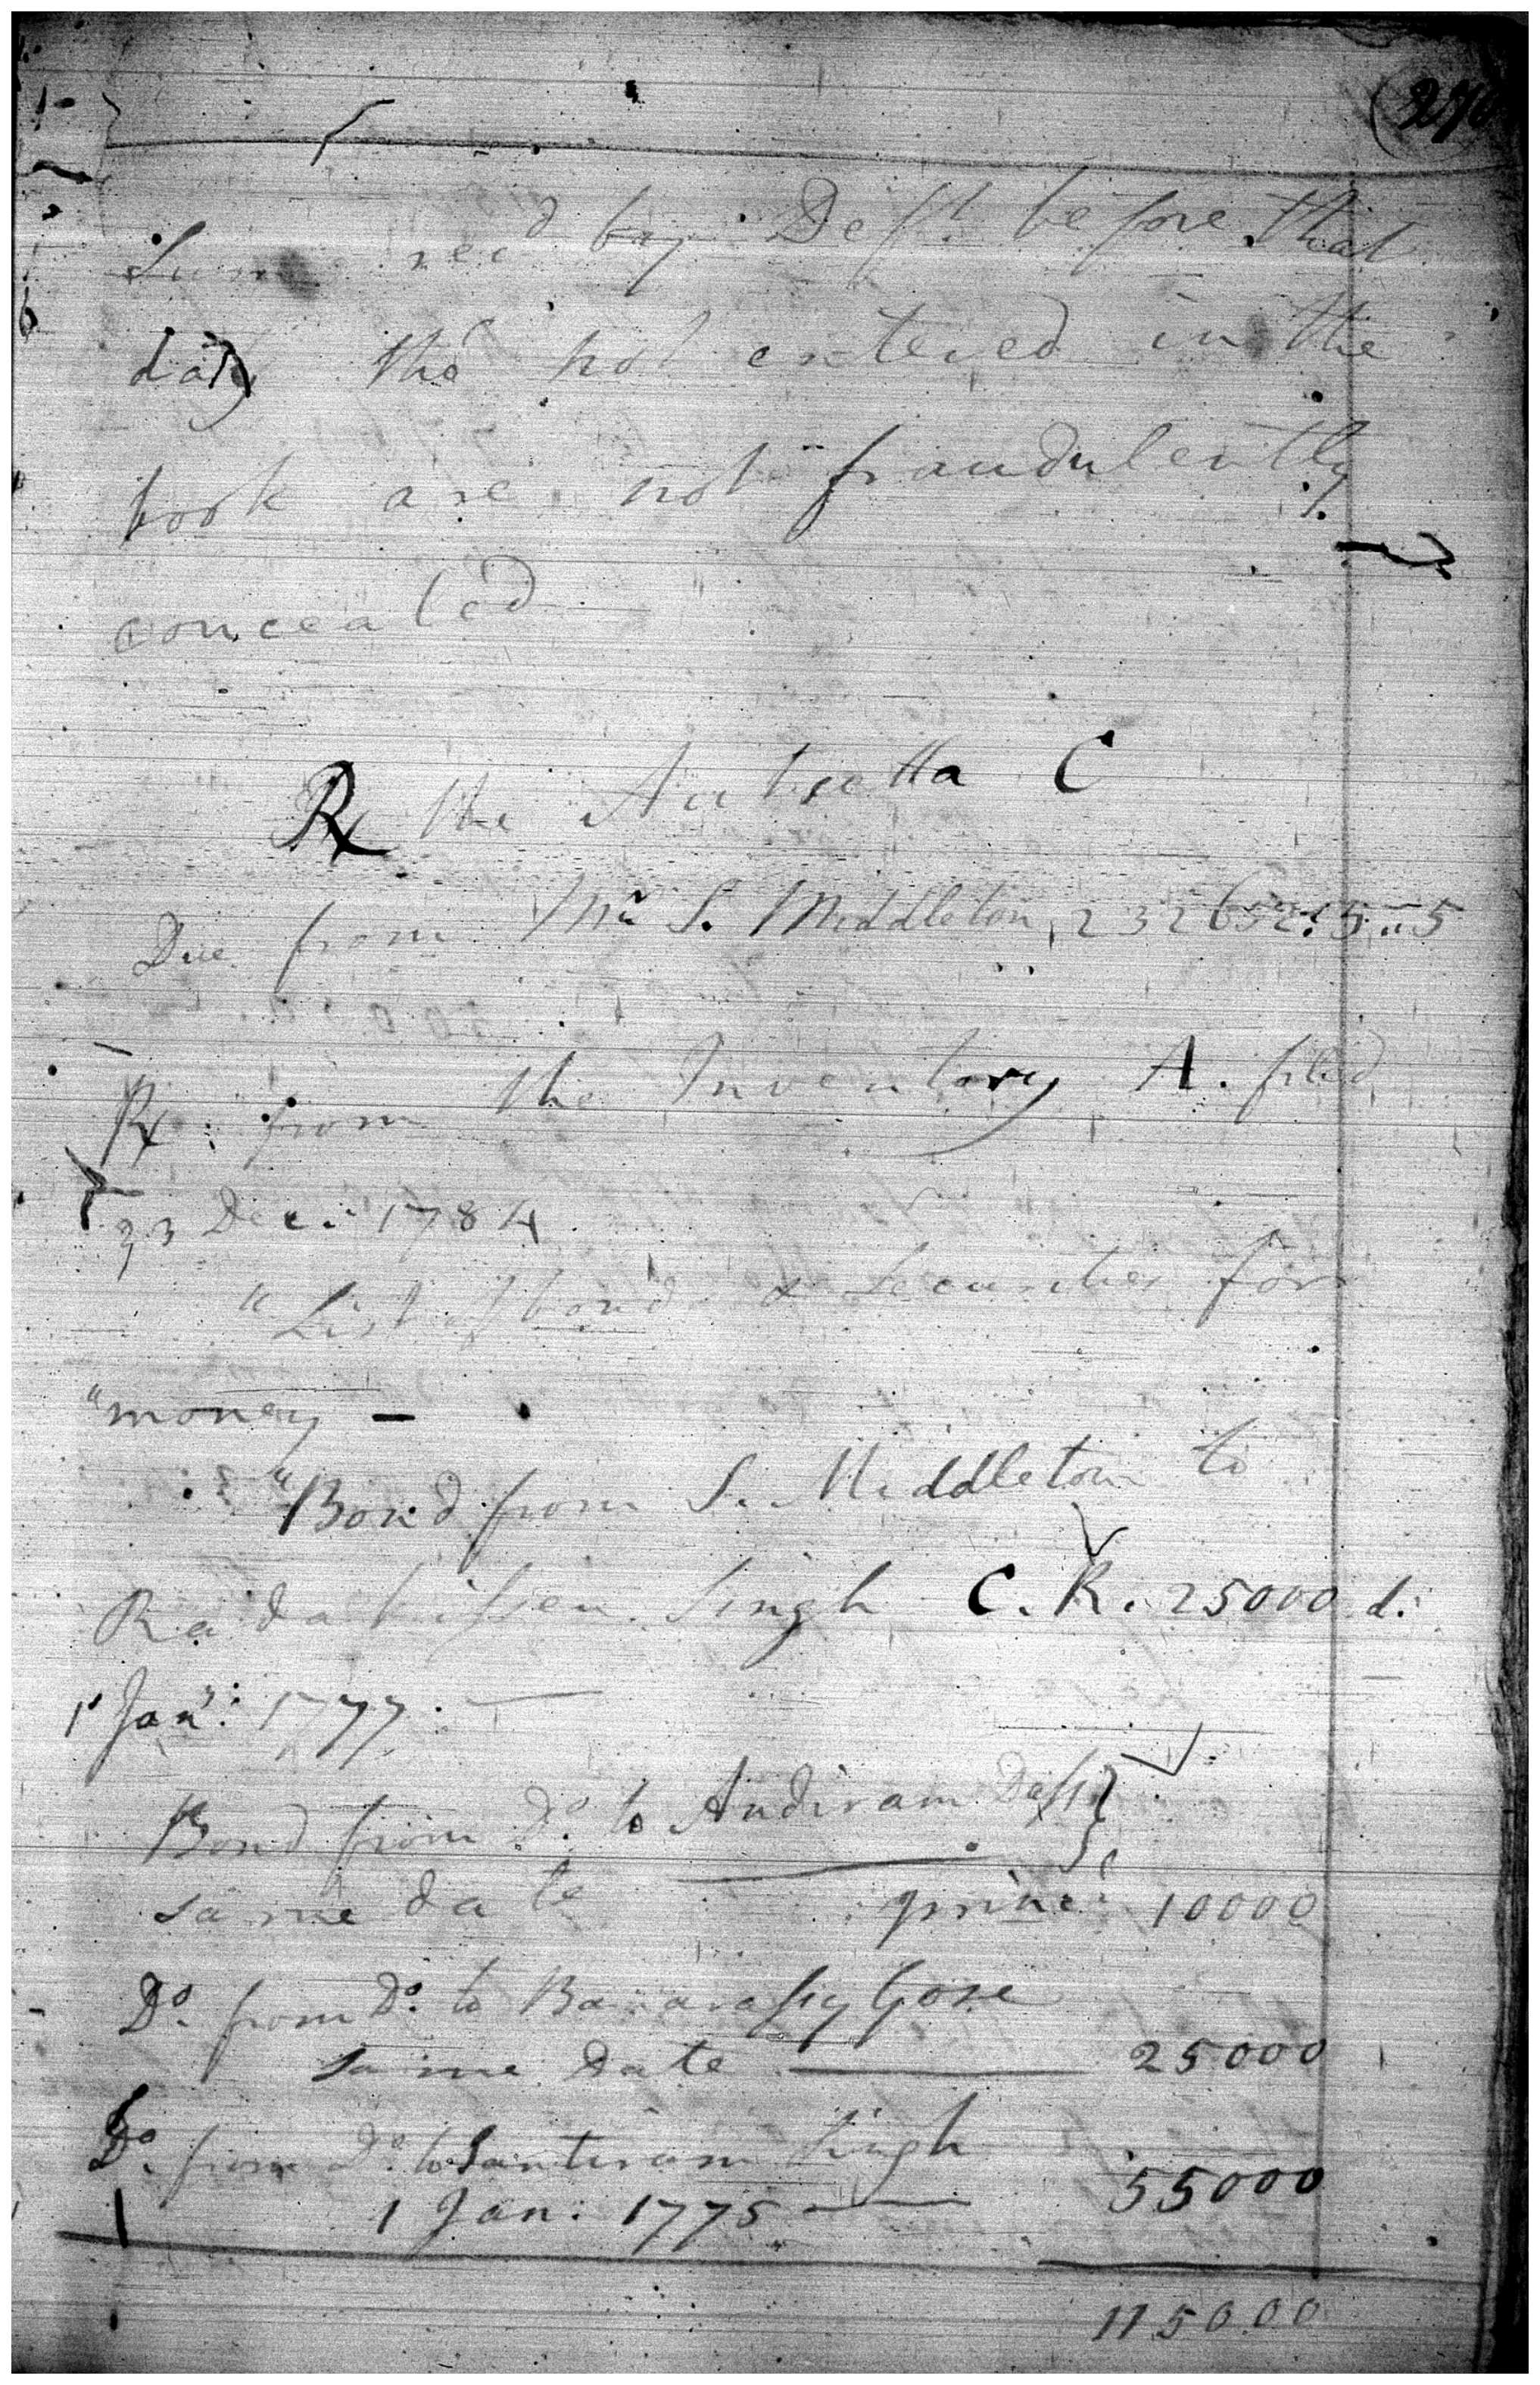 276
Sums rec.d by Deft. before that
day tho' not entered in the
book are not fraudulently
concealed
Rx the C
Due from Mr. S. Middleton 232652:5..5
Rx: from the Inventory A. filed
23 Dec. 1784
"List of bonds & Securities for
"money —
"Bond from S. Middleton to
Radakissen Singh C.R. 25000 d.
1 Jan.y 1777. —
Bond from Do. to Andiram Dass }
same date princ.l 10000
Do. from Do. to Banarassy Gose
same date — 25000
Do. from Do. to Santiram Singh
1 Jan: 1775 — 55000
115000